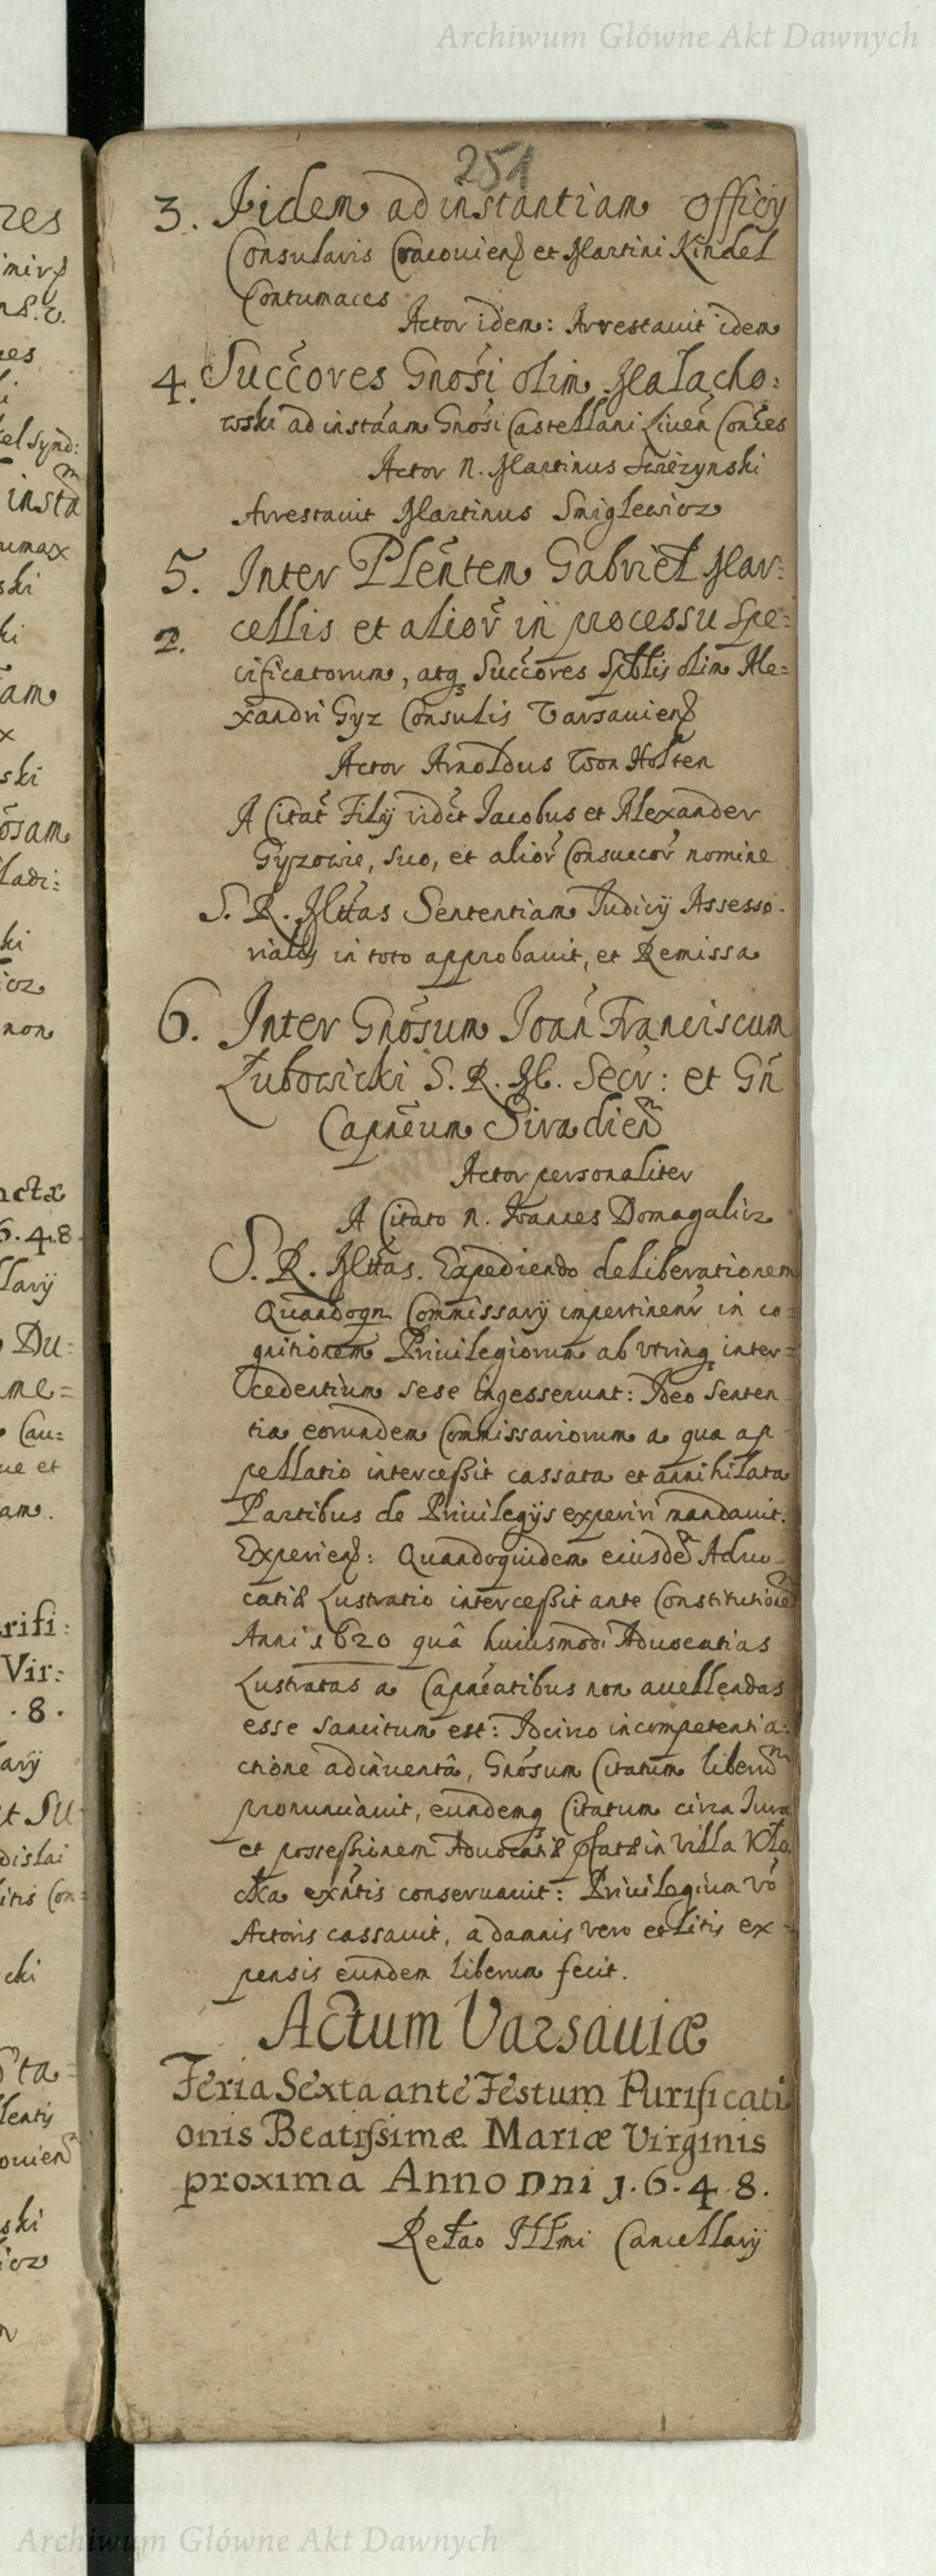 Archiwum Główne Akt Dawnych
251
3. Iidem ad instantiam Officij
Consularis Cracouien et Martini Kindel
Contumaces
Actor idem: Arrestauit idem
4. Succores Gnosi olim Malacho:
wski ad instaam Gnosi Castellani Liuen Conces
Actor N. Martinus
Arrestauit Martinus Smiglewicz
5. Inter Plentem Gabriel Mar:
2. cellis et alior in processu spe:
cificatorum, atq Succores Spblis olim Ale=
xandri Gyz Consulis Varsauien
Actor Arnoldus Von Holten
A Citat Filij vidct Iacobus et Alexander
Gyzowie, suo, et alior Consuccor nomine
S. R. Mttas Sententiam Iudicij Assesso-
rialis in toto approbauit, et Remissa
6. Inter Gnosum Ioan Franciscum
Lubowicki S. R. M. Secr: et Gn
Capneum Siradien
Actor personaliter
A Citato N. Ioannes Domagalicz
S. R. Mttas. Expediendo deliberationem
Quandoqn Commissarij impertinenr in co=
gnitionem Priuilegiorum ab vtrinq inter=
cedentium sese ingesserunt: Ideo senten
tia eorundem Commissariorum a qua ap
pellatio intercessit cassata et annihilata
Partibus de Priuilegijs experiri mandauit.
Experien: Quandoquidem eiusde Aduo
catiæ Lustratio intercessit ante Constitutione
Anni 1620 quâ huiusmodi Aduocatias
Lustratas a Capneatibus non auellendas
esse sancitum est: Idcirco incompetentia:
ctione adinuentâ, Gnosum Citatum liberum
pronunciauit, eundemq Citatum circa Iura
et possessionem Aduocatiæ pfatæ in villa
exntis conseruauit: Priuilegium vo
Actoris cassauit, a damnis vero et Litis ex=
pensis eundem liberum fecit.
Actum Varsauiæ
Feria Sexta ante Festum Purificati
onis Beatissimæ Mariæ Virginis
proxima Anno Dni 1.6.4.8.
Relao Illmi Cancellarij
Archiwum Główne Akt Dawnych